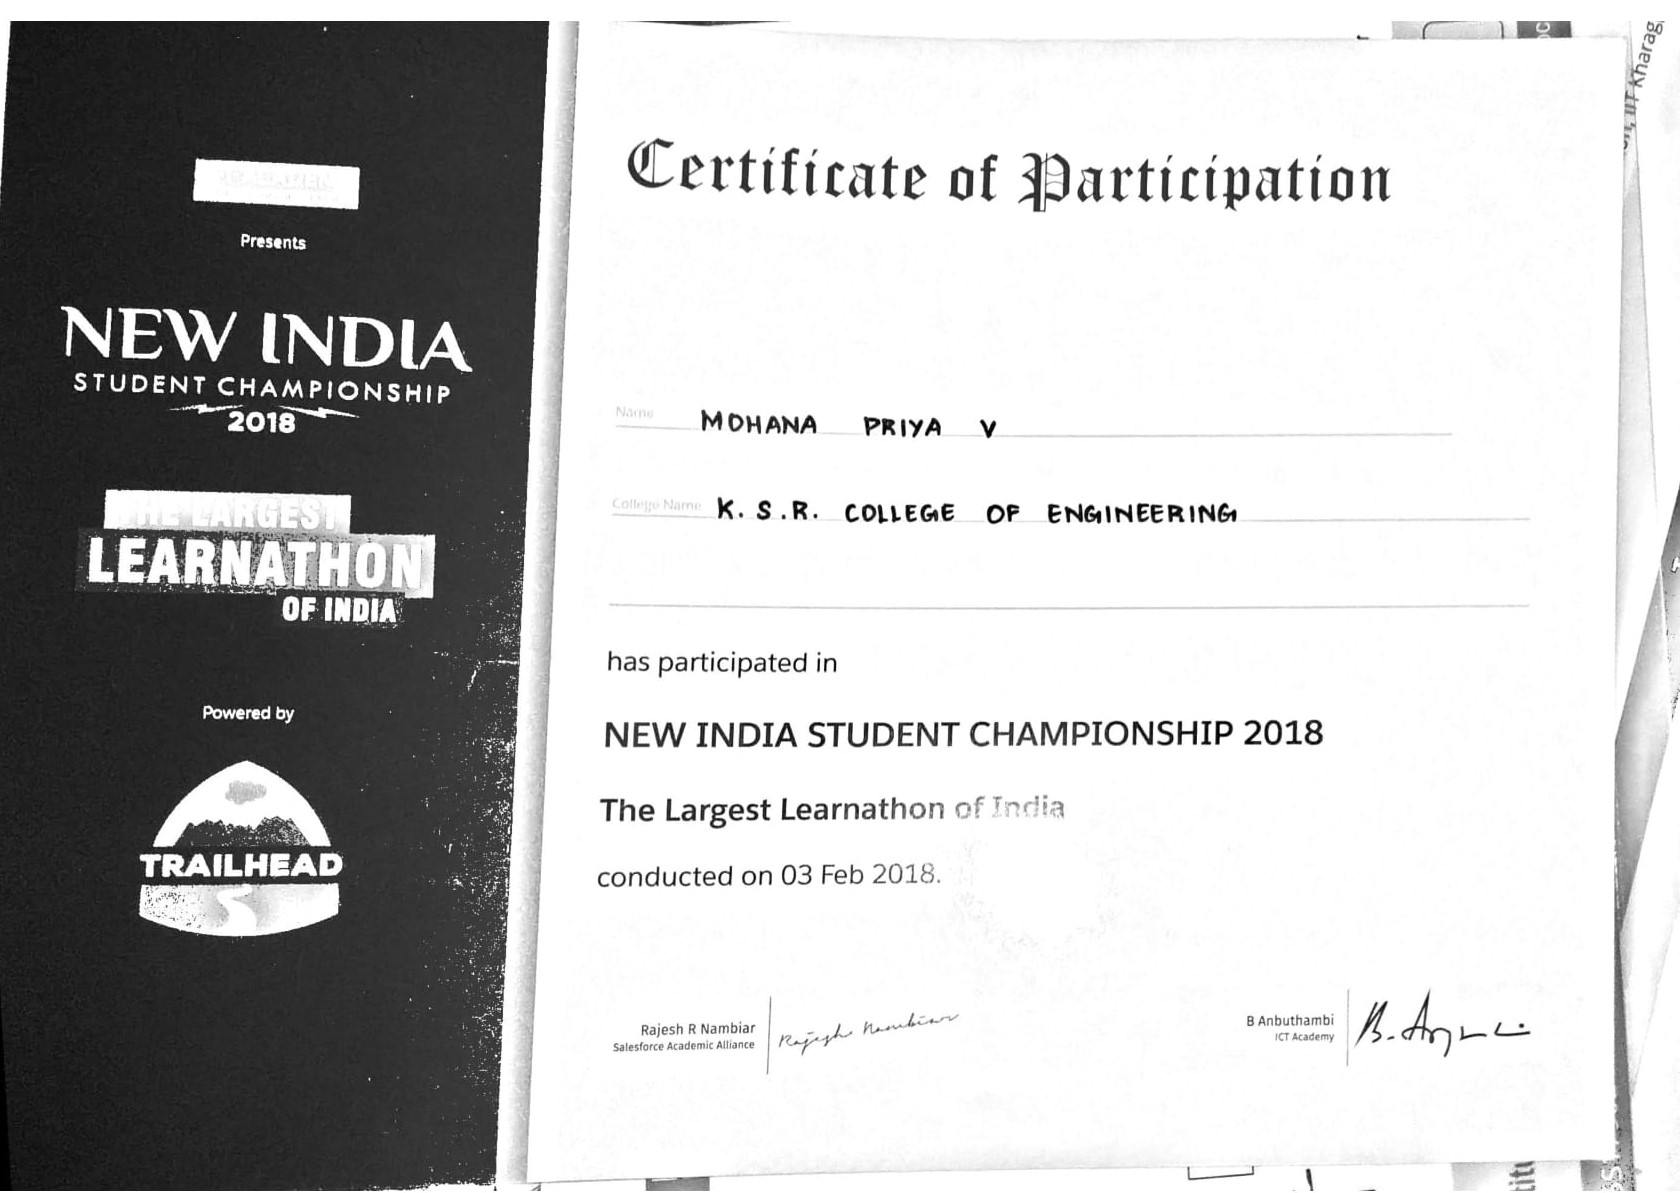 Presents
NEW INDIA
STUDENT CHAMPIONSHIP
2018
THE LARGEST
LEARNATHON
OF INDIA
Powered by
TRAILHEAD
Certificate of Participation
Name MOHANA PRIYA V
College Name K. S. R. COLLEGE OF ENGINEERING
has participated in
NEW INDIA STUDENT CHAMPIONSHIP 2018
The Largest Learnathon of India
conducted on 03 Feb 2018.
Rajesh R Nambiar
Salesforce Academic Alliance
Rajesh Nambiar
B Anbuthambi
ICT Academy
IIT Kharag